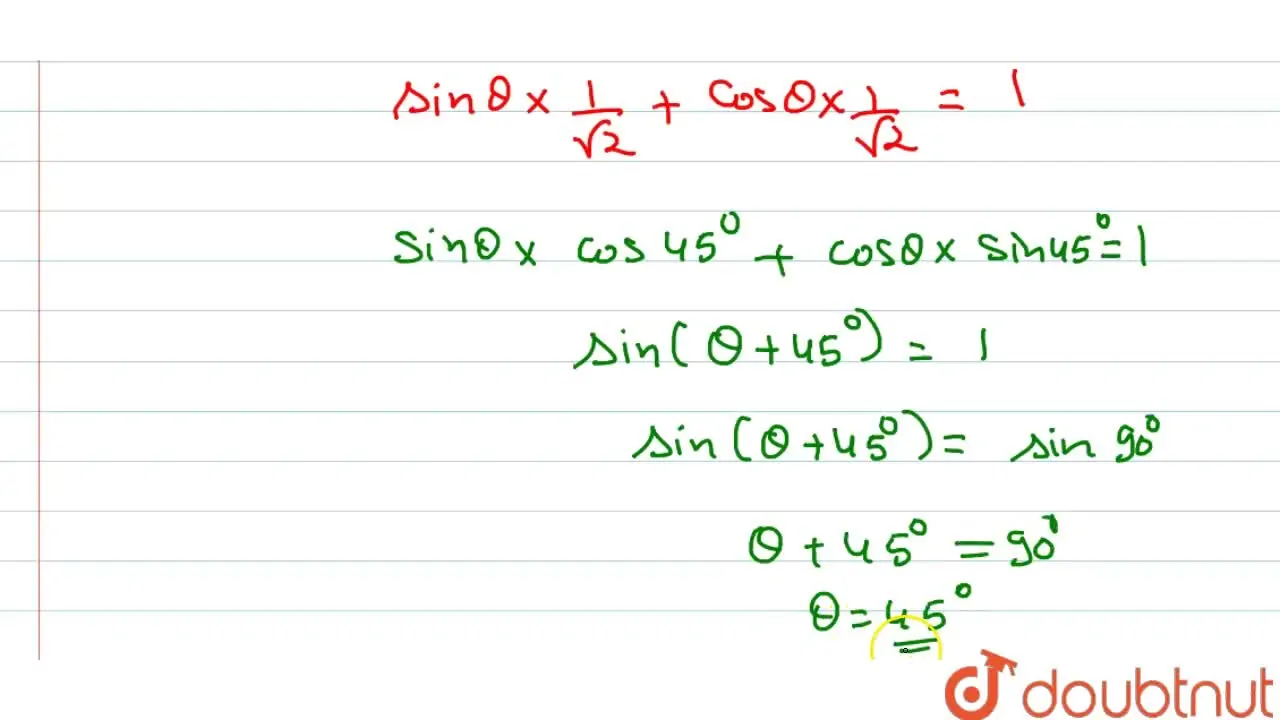 sinθ × 1/√2 + cosθ × 1/√2 = 1
sinθ × cos 45° + cosθ × sin45° = 1
sin(θ + 45°) = 1
sin(θ + 45°) = sin 90°
θ + 45° = 90°
θ = 45°
doubtnut